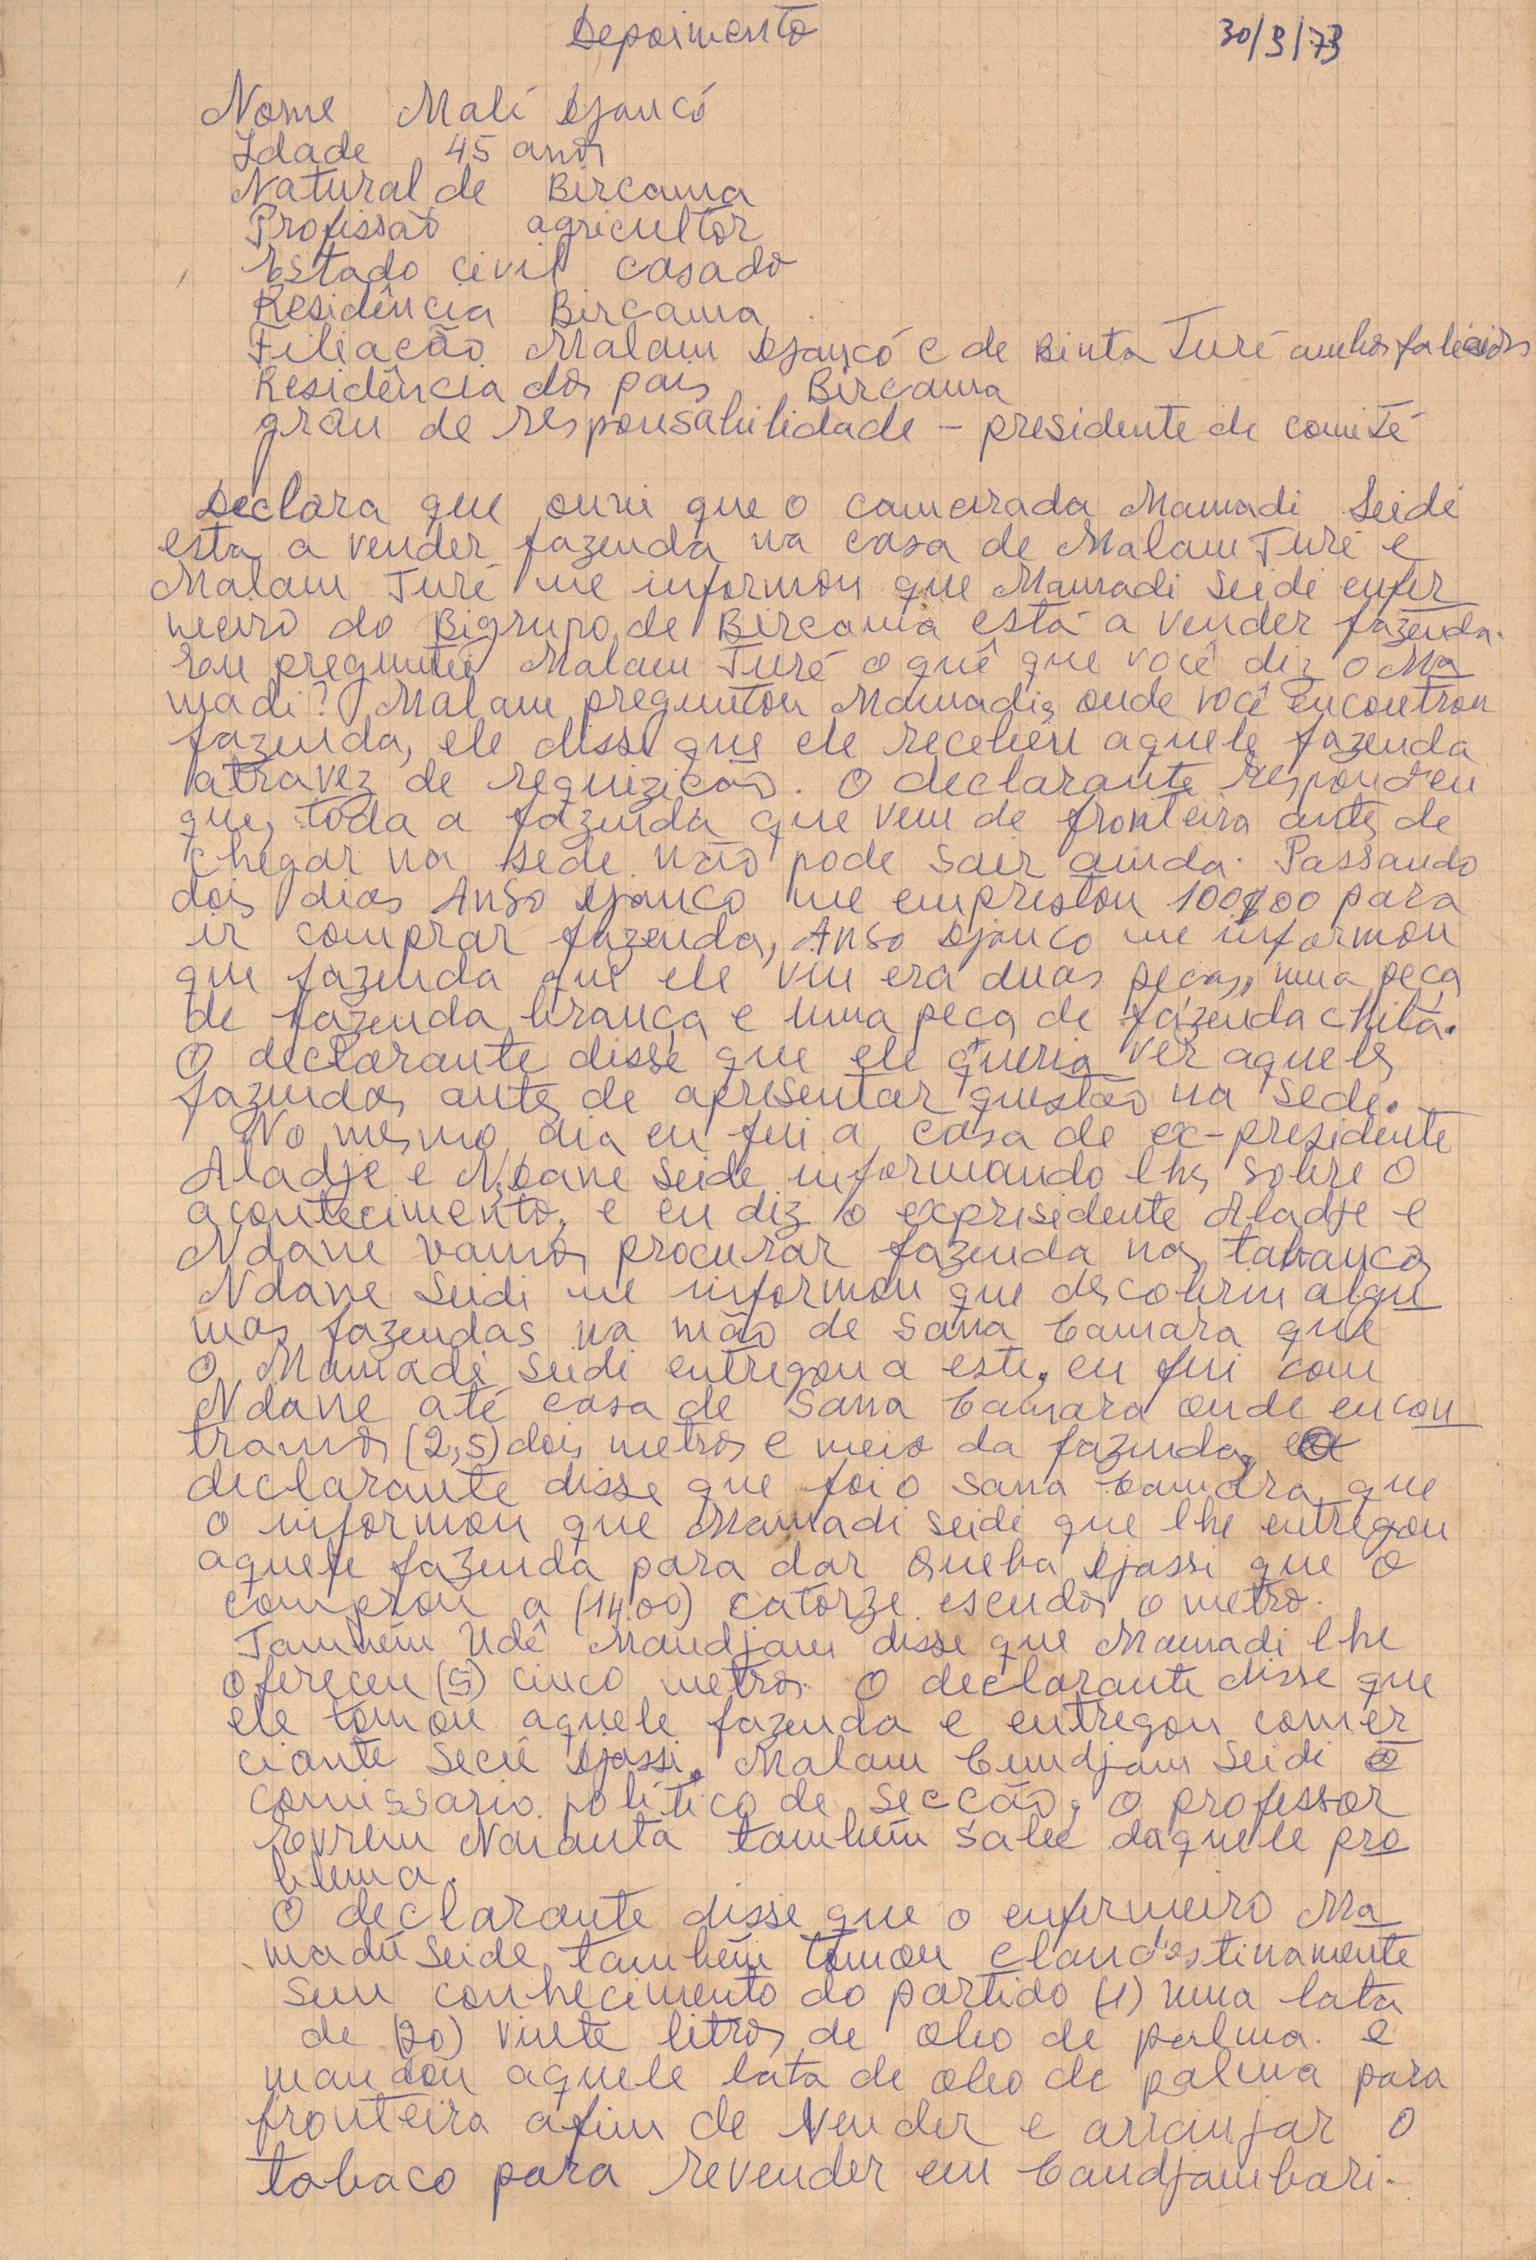 Depoimento 30/3/73
Nome Malí Djancó
Idade 45 anos
Natural de Bircama
Profissão agricultor
Estado civil casado
Residência Bircama
Filiação Malam Djancó e de Binta Turé ambos falécidos
Residência dos pais Bircama
grau de responsabilidade - presidente de comité
Declara que ouvi que o camarada Mamadi Seidi
esta a vender fazenda na casa de Malam Turé e
Malam Turé me informou que Mamadi Seidi enfer
meiro do Bigrupo de Bircama está a vender fazenda.
Eu preguntei Malam Turé o quê que você diz o Ma
madi? Malam preguntou Mamadi, onde você encontrou
fazenda, ele disse que ele recebeu aquele fazenda
atravez de requizicão. O declarante respondeu
que, toda a fazenda que vem de fronteira antes de
chegar na sede não pode sair ainda. Passando
dois dias Anso Djanco me emprestou 100$00 para
ir comprar fazenda, Anso Djanco me informou
que fazenda que ele viu era duas peças, uma peça
de fazenda branca e uma peça de fazenda chita.
O declarante disse que ele queria ver aqueles
fazendas antes de apresentar questão na sede.
No mesmo dia eu fui a casa de ex-presidente
Aladje e Ndane Seide informando lhes sobre o
acontecimento, e eu diz o expresidente Aladje e
Ndane vamos procurar fazenda nas tabancas
Ndane Seidi me informou que descobriu algu
mas fazendas na mão de Sana Camara que
O Mamadi Seidi entregou a este, eu fui com
Ndane até casa de Sana Camara onde encon
tramos (2,5) dois metros e meio da fazenda, o
declarante disse que foi o Sana Camara que
o informou que Mamadi Seidi que lhe entregou
aquele fazenda para dar Queba Djassi que o
comprou a (14.00) catorze escudos o metro.
Também Udê Mandjam disse que Mamadi lhe
ofereceu (5) cinco metros. O declarante disse que
ele tomou aquele fazenda e entregou comer
ciante Secú Djassi, Malam Cundjam Seidi o
comissario político de secção, o professor
Evrem Naianta também sabe daquele pro
blema.
O declarante disse que o enfermeiro Ma
madú Seide também tomou clandestinamente
sem conhecimento do partido (1) uma lata
de (20) vinte litros de oleo de palma. e
mandou aquele lata de oleo de palma para
fronteira afim de vender e arranjar o
tabaco para revender em Candjambari.